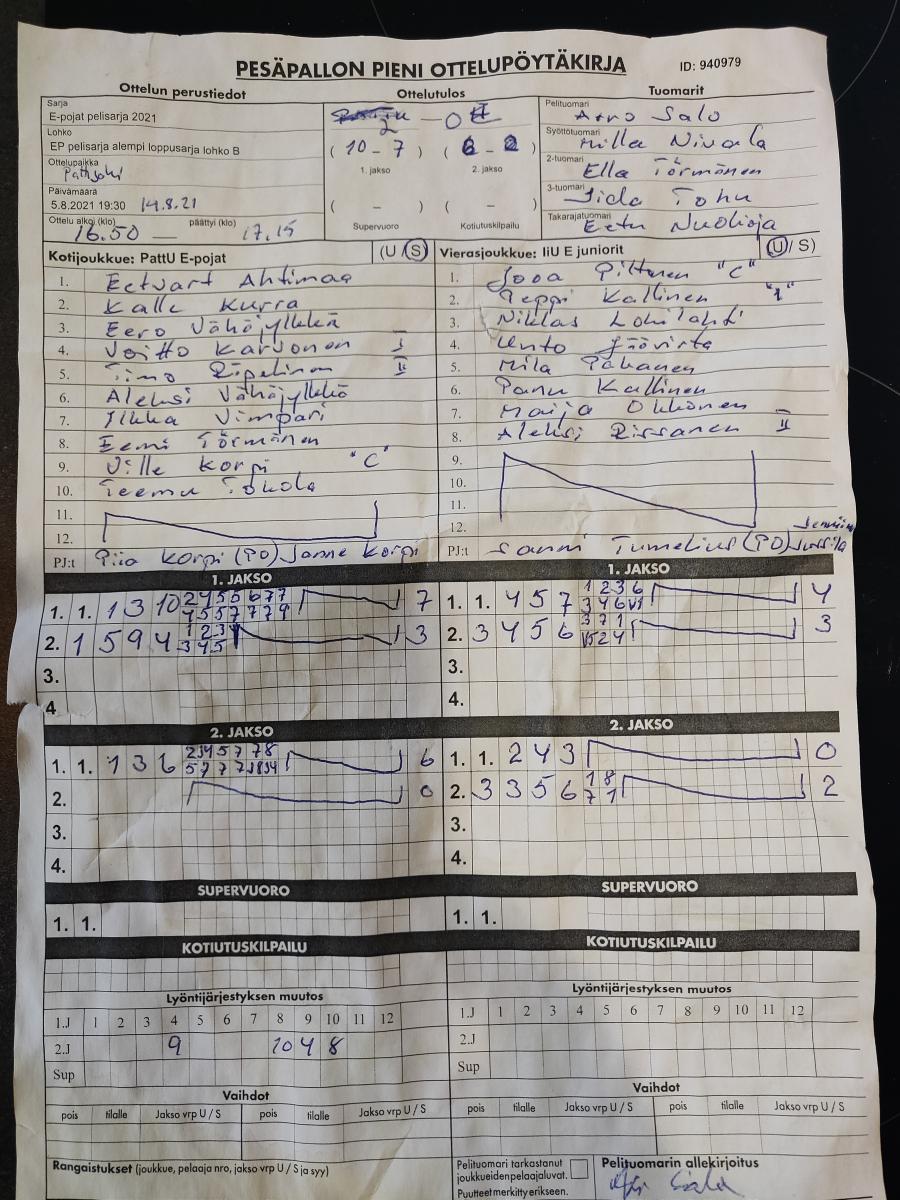 PESÄPALLON PIENI OTTELUPÖYTÄKIRJA ID: 940979
Ottelun perustiedot Ottelutulos Tuomarit
Sarja
E-pojat pelisarja 2021
2 - 0
Pelituomari
Salo
Lohko
EP pelisarja alempi loppusarja lohko B
(10 - 7) (6 - 2)
1. jakso 2. jakso
Syöttötuomari
Milla Nivala
Ottelupaikka
Pattijoki
2-tuomari
Ella Törmänen
Päivämäärä
5.8.2021 19:30 14.8.21
( - ) ( - )
Supervuoro Kotiutuskilpailu
3-tuomari
Iida
Ottelu alkoi (klo) päättyi (klo)
16.50 17.15
Takarajatuomari
Eetu
Kotijoukkue: PattU E-pojat (U / S) Vierasjoukkue: IiU E juniorit (U / S)
1. Eetvart Ahtimaa
2. Kalle Kurra
3. Eero Vähäjylkkä
4. Voitto Karvonen I
5. Timo Ripatinen II
6. Aleksi Vähäjylkkä
7. Ilkka Vimpari
8. Eemi Törmänen
9. Ville Korpi "C"
10. Teemu Tokola
11.
12.
PJ:t Piia Korpi (PO) Janne Korpi
1. Jooa Piltonen "C"
2. Peppi Kallinen "1"
3. Niklas Lohilahti
4. Unto Jäävirta
5. Mila Pakanen
6. Panu Kallinen
7. Maija Okkonen
8. Aleksi Rissanen II
9.
10.
11.
12.
PJ:t Sanni Tumelius (PO)
1. JAKSO 1. JAKSO
1. 1. 1 3 10 7
2. 1 5 9 4 3
3.
4
1. 1. 4 5 7 4
2. 3 4 5 6 3
3.
4.
2. JAKSO 2. JAKSO
1. 1. 1 3 6 6
2. 0
3.
4.
1. 1. 2 4 3 0
2. 3 3 5 6 1 8 7 1 2
3.
4.
SUPERVUORO SUPERVUORO
1. 1. 1. 1.
KOTIUTUSKILPAILU KOTIUTUSKILPAILU
Lyöntijärjestyksen muutos Lyöntijärjestyksen muutos
1.J 1 2 3 4 5 6 7 8 9 10 11 12
2.J 9 10 4 8
Sup
1.J 1 2 3 4 5 6 7 8 9 10 11 12
2.J
Sup
Vaihdot Vaihdot
pois tilalle Jakso vrp U / S pois tilalle Jakso vrp U / S
pois tilalle Jakso vrp U / S pois tilalle Jakso vrp U / S
Rangaistukset (joukkue, pelaaja nro, jakso vrp U / S ja syy)
Pelituomari tarkastanut
joukkueiden pelaajaluvat.
Puutteet merkitty erikseen.
Pelituomarin allekirjoitus